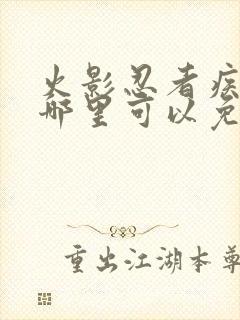 火影忍者疾
哪里可以免
重出江湖本尊